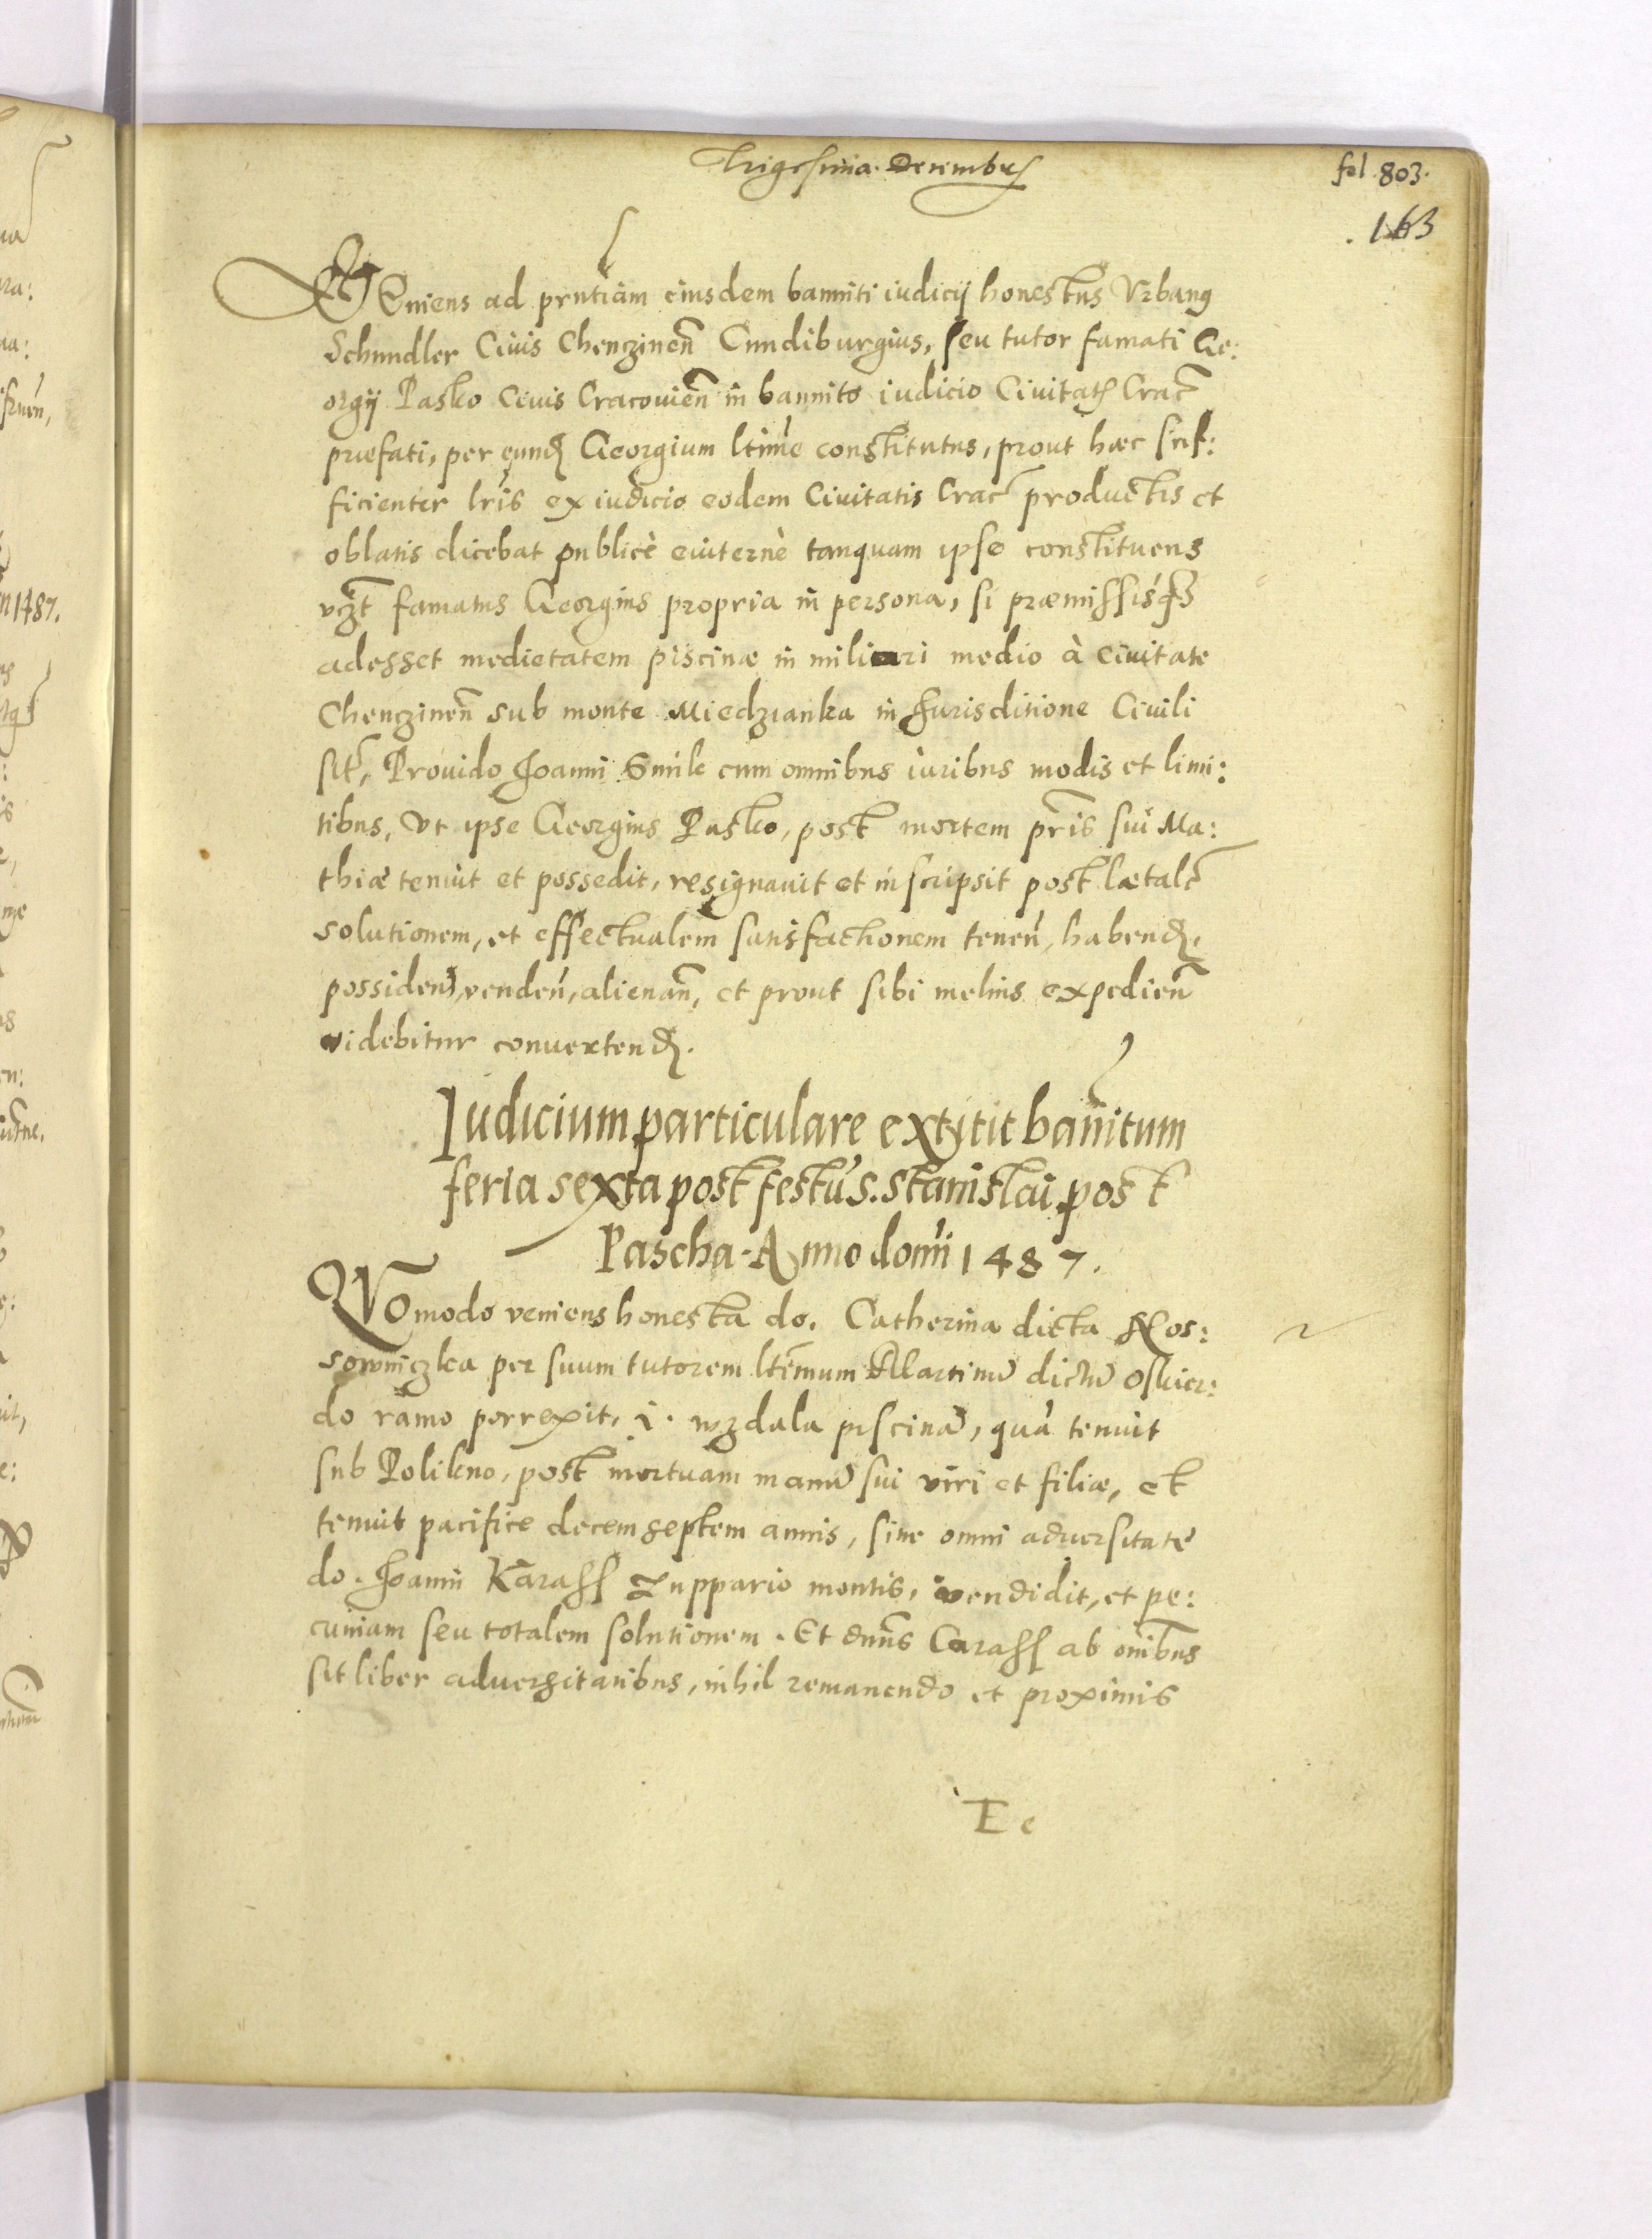 Trigesima Decembris
fol. 803.
163
VEniens ad prntiam eiusdem banniti iudicij honestus Vrbanus
Schindler Ciuis Chencinen Cundiburgius, seu tutor famati Ge:
orgij Pasko Ciuis Cracouien in bannito iudicio Ciuitatis Crac
praefati, per eund Georgium ltime constitutus, prout haec suf:
ficienter lris ex iudicio eodem Ciuitatis Crac productis et
oblatis dicebat publicè tanquam ipse constituens
vzt famatus Georgius propria in persona, si praemissis
adesset medietatem piscinae in miliari medio à Ciuitate
Chenczinen sub monte Miedzianka in Jurisditione Ciuili
sit, Prouido Joanni Smik cum omnibus iuribus modis et limi:
tibus, vt ipse Georgius Pasko, post mortem pris sui Ma:
thiae tenuit et possedit, resignauit et inscripsit post laetale
solutionem, et effectualem satisfactionem tenen, habend,
possiden, venden, alienan, et prout sibi melius expedien
videbitur conuertend.
Iudicium particulare extitit bannitum
feria sexta post festu S. Stanislai post
Pascha. Anno domi 1487.
QVomodo veniens honesta do. Catherina dicta Kos:
sowniczka per suum tutorem ltimum Martinu dictu Oskier:
do ramo porrexit, i. wzdala piscina, qua tenuit
sub Polikno, post mortuam manu sui viri et filiae, et
tenuit pacifice decem septem annis, sine omni aduersitate
do. Joanni Karass Zuppario montis, vendidit, et pe:
cuniam seu totalem solutionem. Et dnus Carass ab omibus
sit liber aduersitatibus, nihil remanendo et proximis
Ee